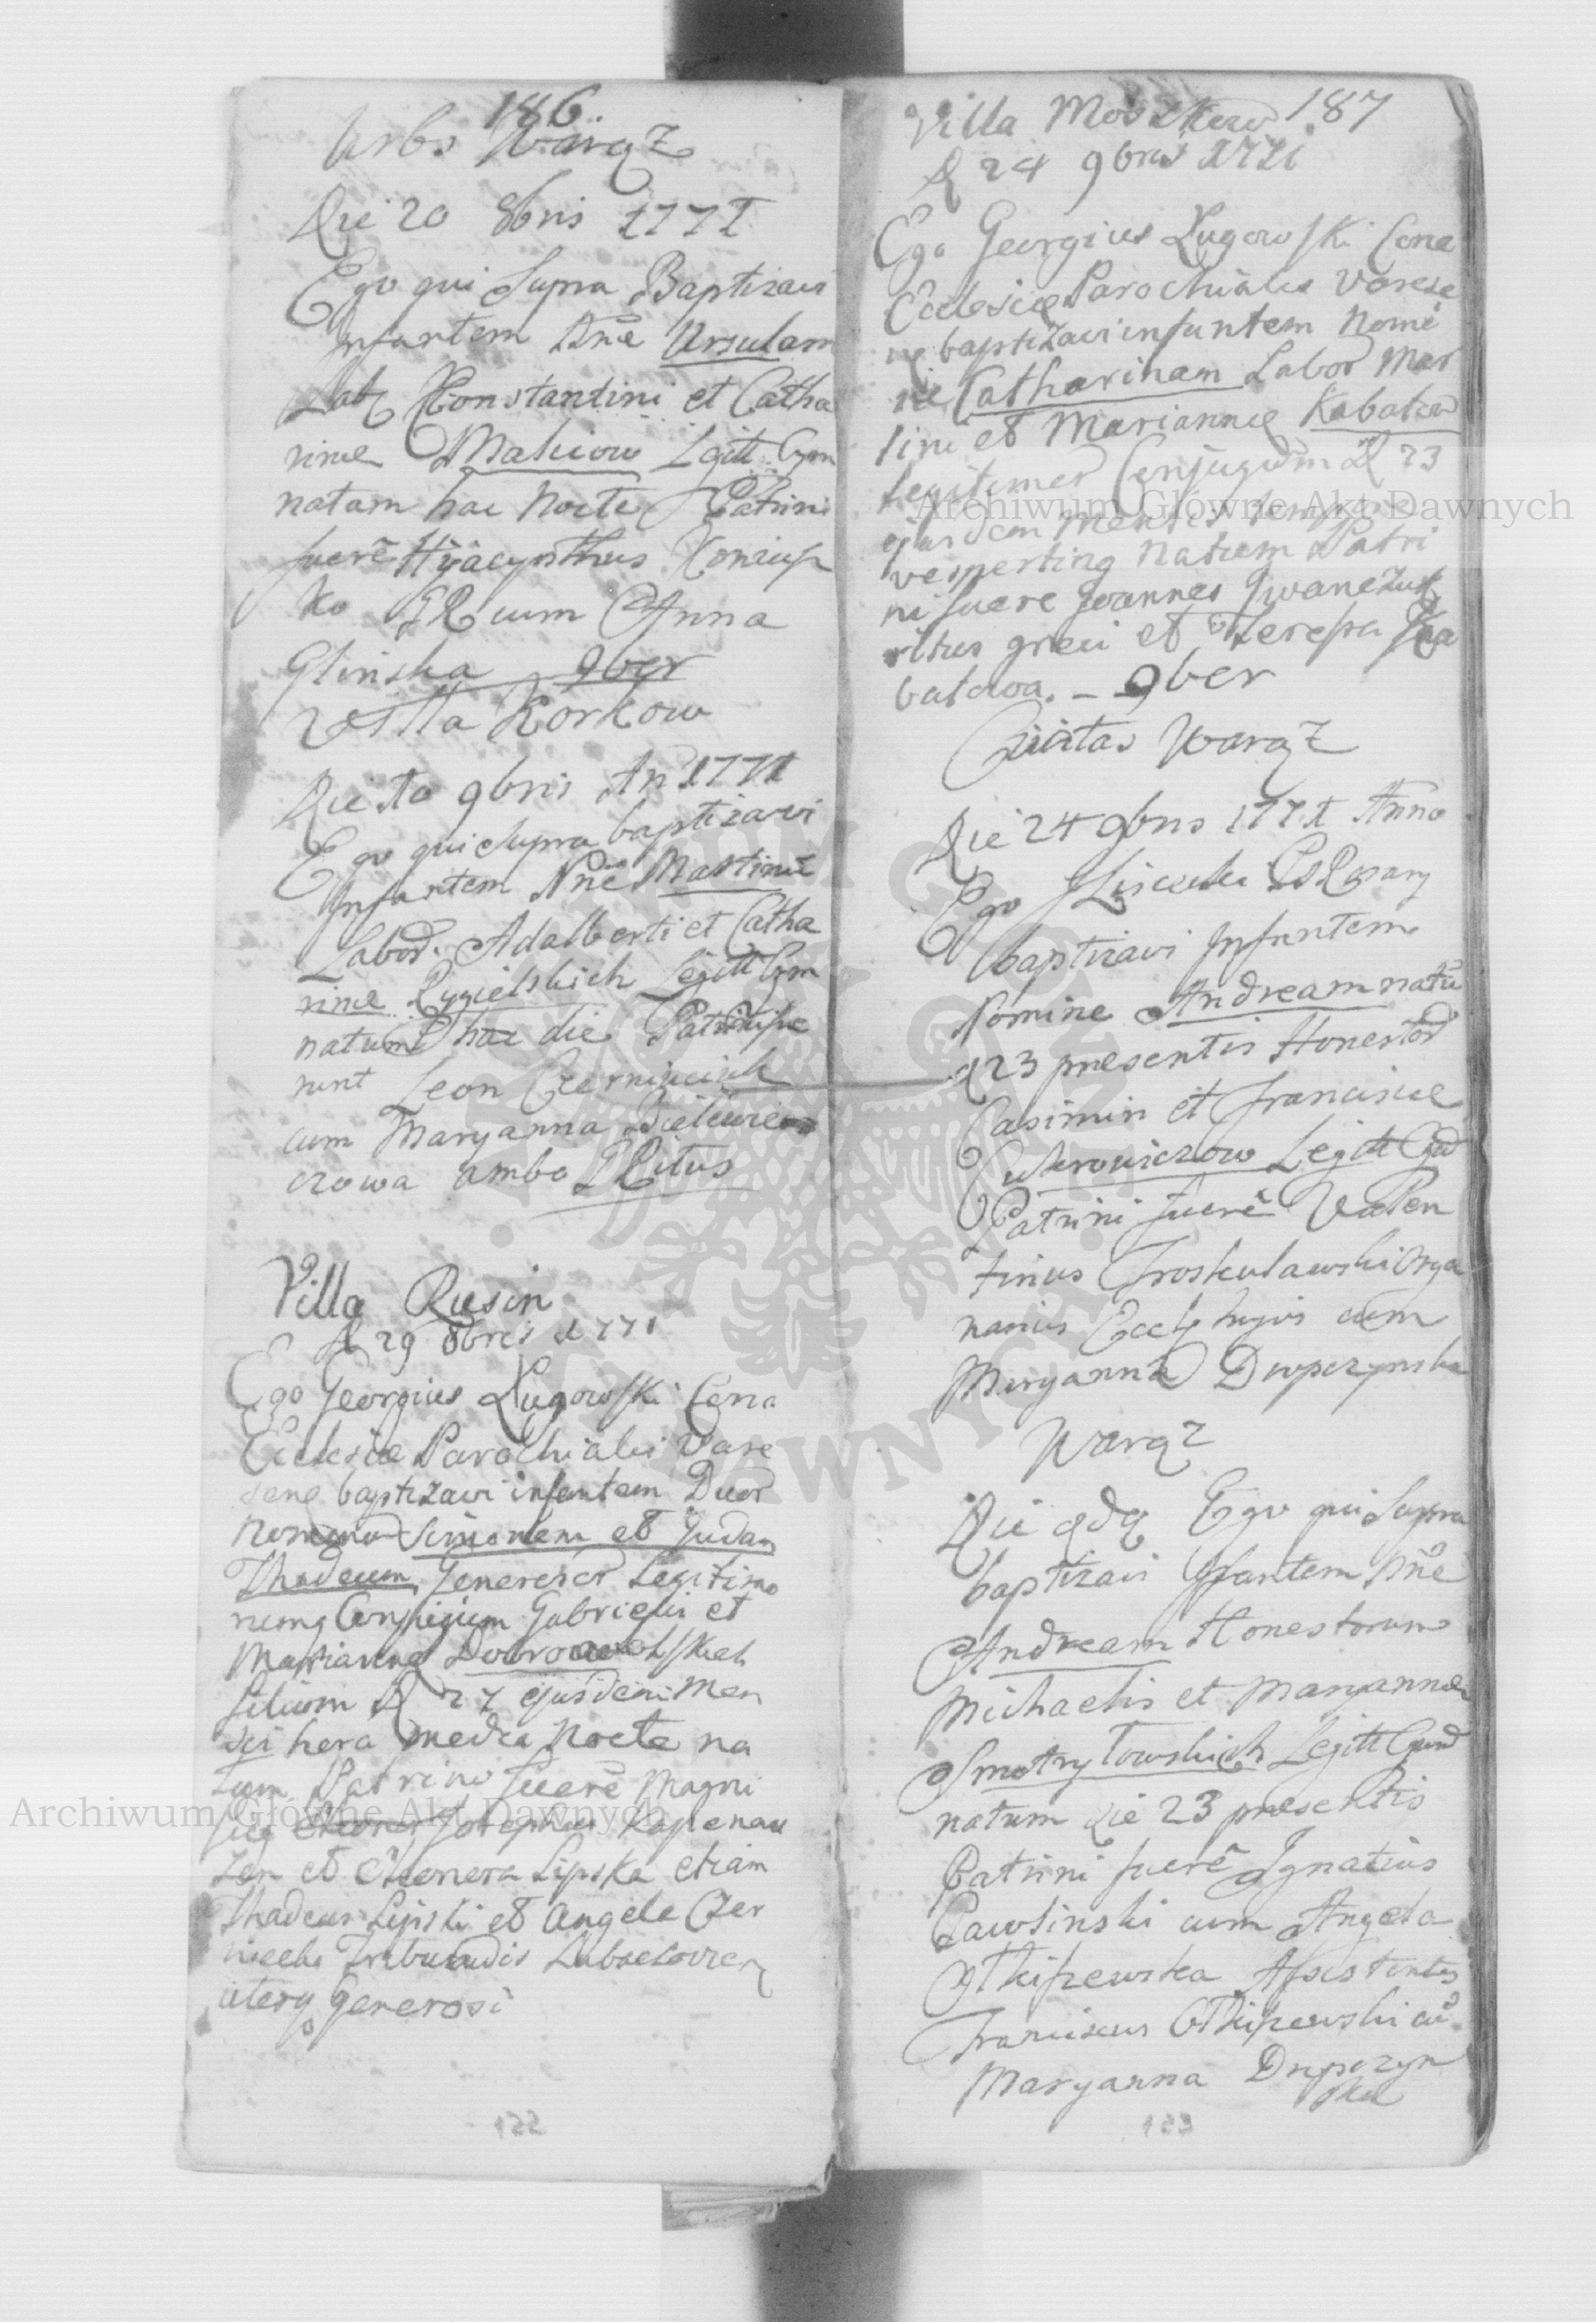 186
Urbs Warąz
Die 20 8bris 1771
Ego qui supra Baptizavi
Infantem Nne Ursulam
Lab Konstantini et Catha
rinæ Makiow Legitt Cjm
natam hac Nocte Patrini
fuere Hyacynthus
ko GR cum Anna
Glinska 9ber
Villa Korkow
Die 10 9bris An 1771
Ego qui supra baptizavi
Infantem Nne Martinũ
Labor. Adalberti et Catha
rinæ Rygielskich Legitt Cjm
natum hac die Patrini fue
runt Leon
cum Maryanna
czowa ambo GRitus
Villa Rusin
D 29 8bris 1771
Ego Georgius Ługowski
Ecclesiæ Parochialis Vare
baptizavi infantem Duor
Nominũ Simonem et Judam
Thadeum Generosor Legitimo
rumq Conjugum Gabrielis et
Mariannæ Dobrowolskich
filium D 27 ejusdem Men
sis hora media Nocte na
tum Patrini fuere Magni
fici Josephus
et Eleonora Lipska etiam
Thadeus Lipski et Angela Czer
niecka
uterq Generosi
122
Villa Moszkow 187
D 24 9bris 1771
Ego Georgius Ługowski
Ecclesiæ Parochialis Varesa
baptizavi infantem Nomi
ne Catharinam Labor Mar
tini et Mariannæ Kabatow
Legitimor Conjugum D 23
ejusdem Mensis tempore
vespertino Natam Patri
ni fuere Joannes Iwanczuk
ritus græci et Teressa Ka
batowa. - 9ber
Civitas Warąz
Die 24 9bris 1771 Anno
Ego
baptizavi Infantem
Nomine Andream natũ
d 23 presentis Honestor
Casimiri et Franciscæ
Legitt Cjd
Patrini fuerẽ Valen
tinus Troskulawski Orga
narius Eccl hujus cum
Maryanna Drypczynska
Warąz
Die eadẽ Ego qui Supra
baptizavi Infantem Nne
Andream Honestorum
Michaelis et Maryannæ
Smotrytowskich Legitt Cjmd
natum die 23 presentis
Patrini fuerẽ Ignatius
Pawlinski cum Angela
Assistentes
Franciscus cũ
Maryanna Drypczyn
ska
123
Archiwum Główne Akt Dawnych
Archiwum Główne Akt Dawnych